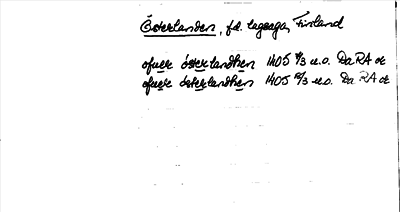 Österlanden, f.d. lagsaga, Finland
ofuer österlandhen 1405 8/3 u.o. Da RA or
ofuer österlandhen 1405 18/3 u.o. Da RA or